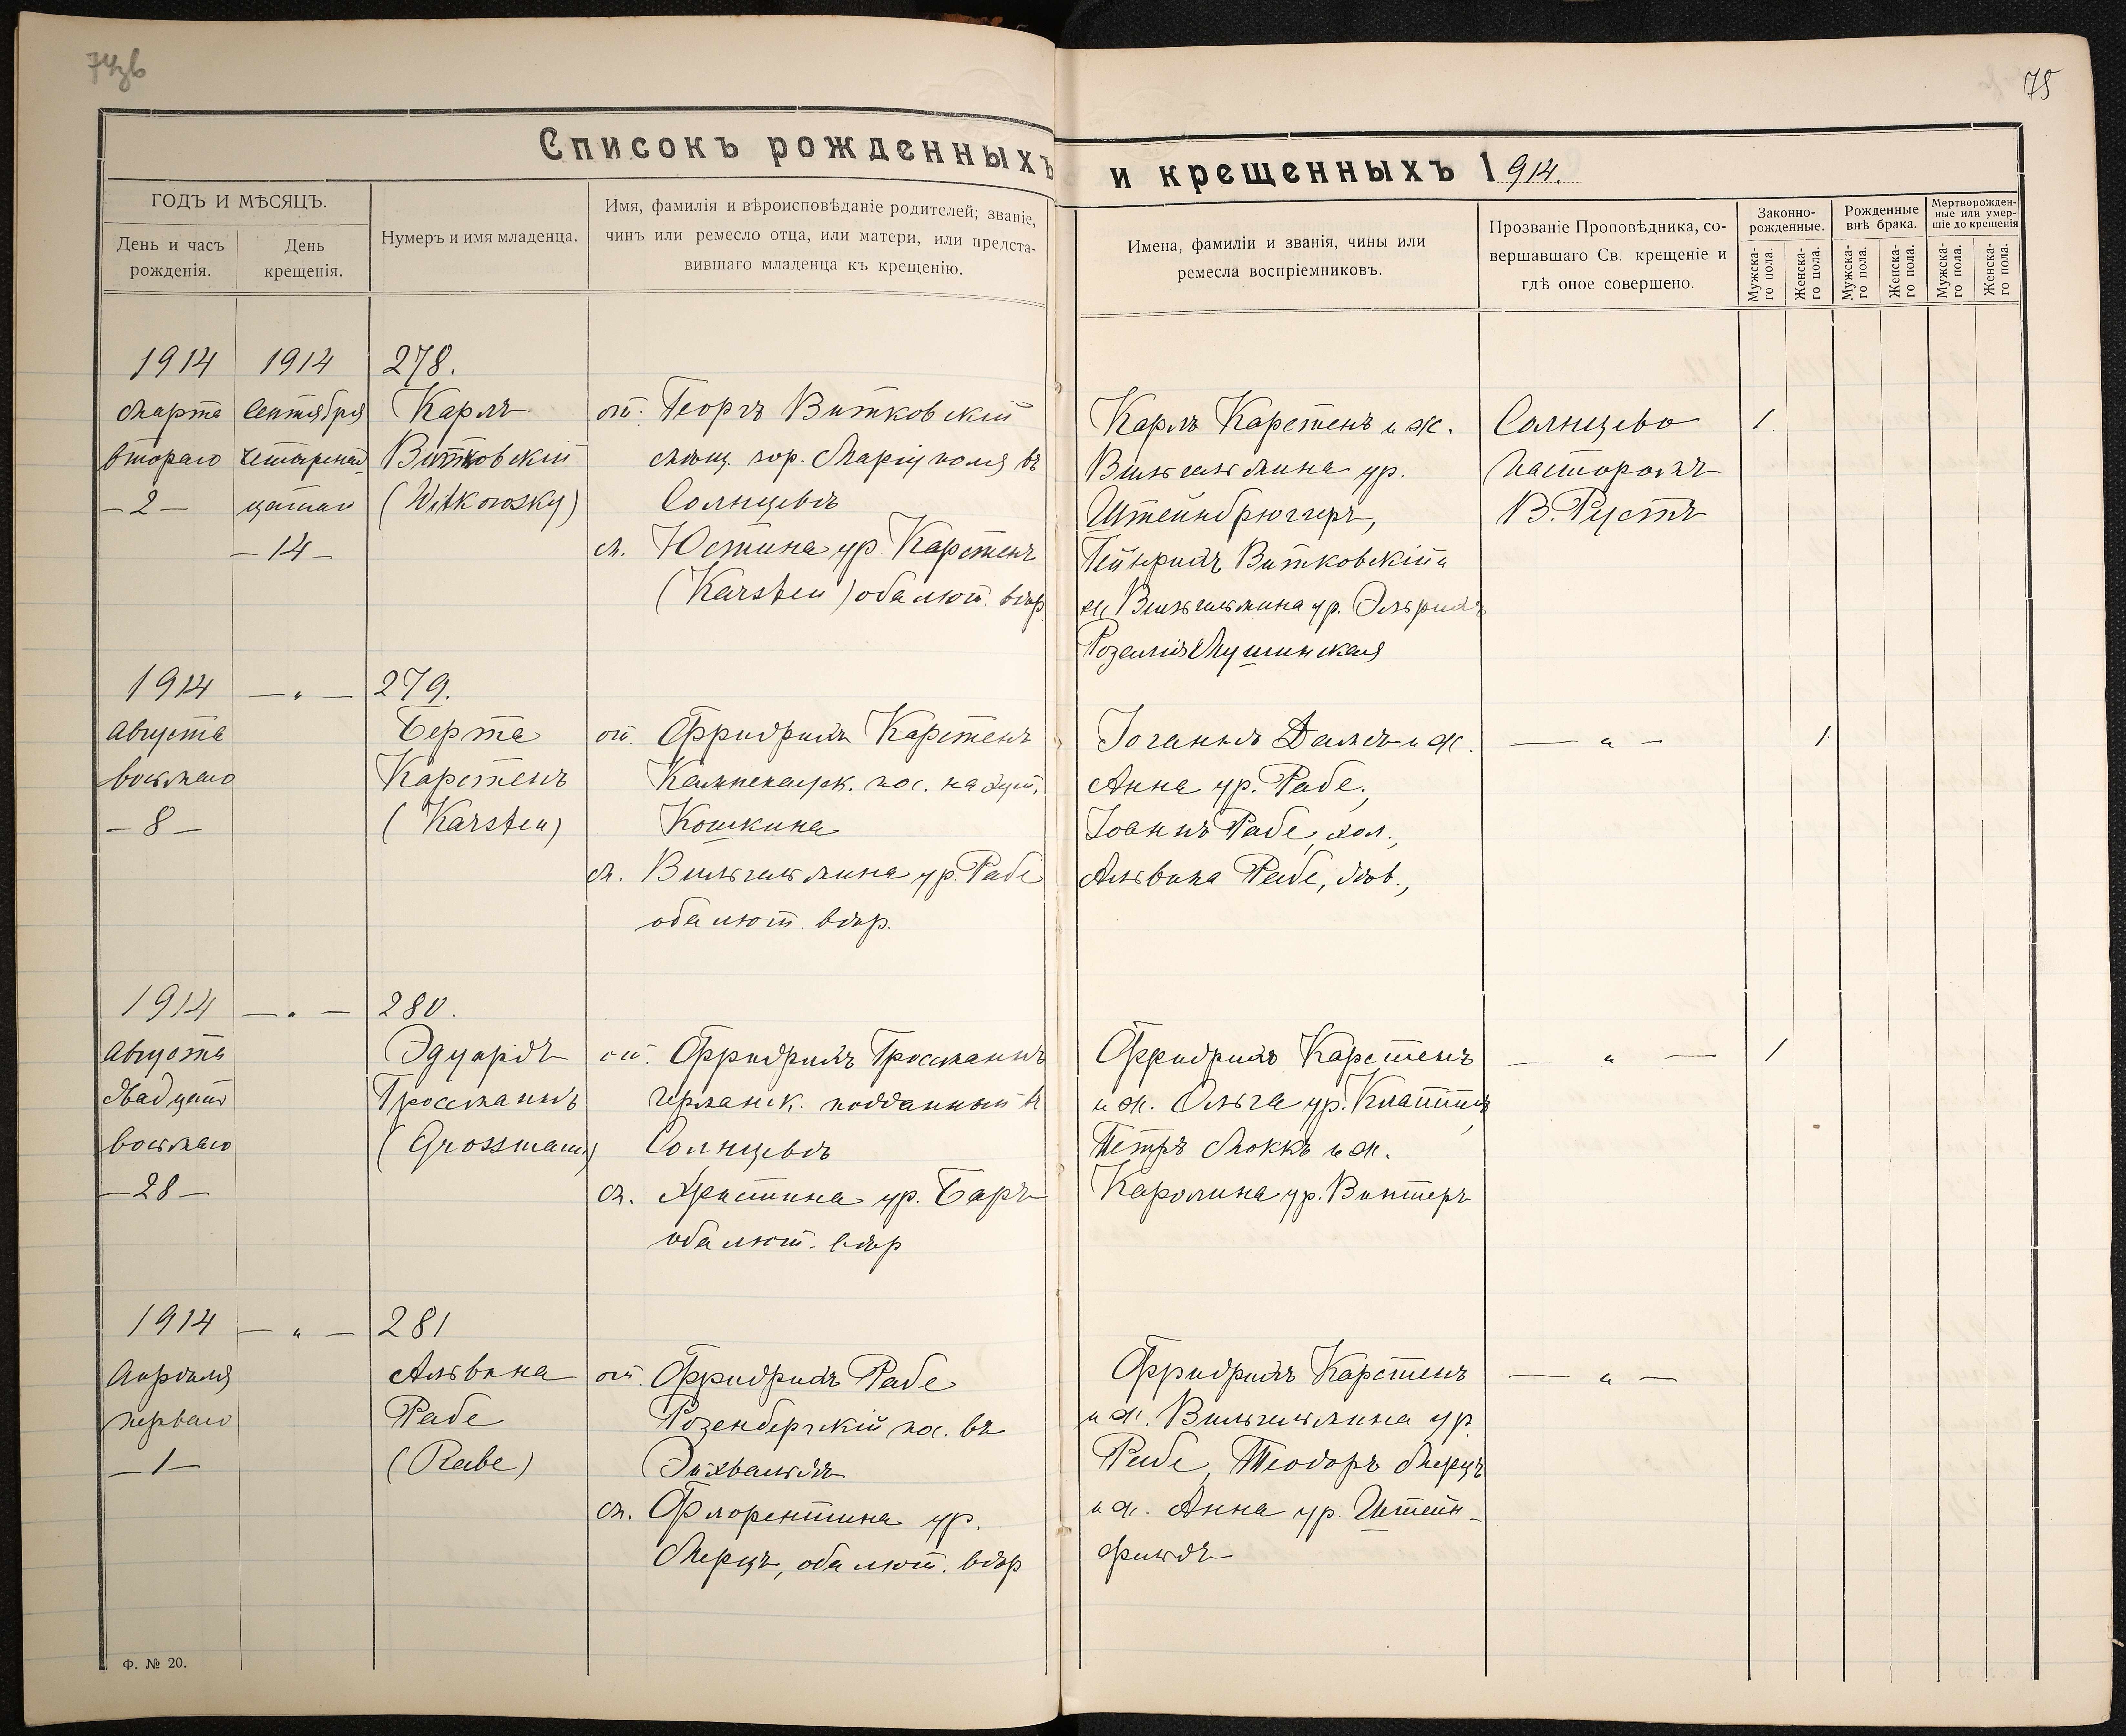 74об
75
Списокъ рожденныхъ и крещенныхъ 1914.
ГОДЪ И МѢСЯЦЪ.
День и часъ рожденія.
День крещенія.
Нумеръ и имя младенца.
Имя, фамилія и вѣроисповѣданіе родителей; званіе,
чинъ или ремесло отца, или матери, или предста-
вившаго младенца къ крещенію.
Имена, фамиліи и званія, чины или
ремесла воспріемниковъ.
Прозваніе Проповѣдника, со-
вершавшаго Св. крещеніе и
гдѣ оное совершено.
Законно-
рожденные.
Рожденные
внѣ брака.
Мертворожден-
ные или умер-
шіе до крещенія
Мужска-
го пола.
Женска-
го пола.
Мужска-
го пола.
Женска-
го пола.
Мужска-
го пола.
Женска-
го пола.
1914
Марта
второго
- 2 -
1914
Сентября
четырнад
цатаго
- 14 -
278.
Карлъ
Витковскій
(Witkowsky)
от. Георгъ Витковскій
мѣщ. гор. Маріуполя въ
Солнцевѣ
м. Юстина ур. Карстенъ
(Karsten) оба лют. вѣр.
Карлъ Карстенъ и ж.
Вильгельмина ур.
Штейнбрюггеръ,
Гейнрихъ Витковскій и
ж. Вильгельмина ур. Эльрихъ
Розалія Мушинская
Солнцево
Пасторомъ
В. Рустъ
1.
1914
Августа
восьмаго
- 8 -
— " —
279.
Берта
Карстенъ
(Karsten)
от. Фридрихъ Карстенъ
пос. на хут.
Кошкина
м. Вильгельмина ур. Рабе
оба лют. вѣр.
Іоганнъ Дамъ и ж.
Анна ур. Рабе,
Іоаннъ Рабе, хол.,
Альвина Рабе, дѣв.,
— " —
1
1914
Августа
двадцать
восьмаго
- 28 -
— " —
280.
Эдуардъ
Гроссманнъ
(Grossmann)
от. Фридрихъ Гроссманнъ
германск. подданный въ
Солнцевѣ
м. Христина ур. Баръ
оба лют. вѣр
Фридрихъ Карстенъ
и ж. Ольга ур.
Петръ Моккъ и ж.
Каролина ур. Винтеръ
— " —
1
1914
Апрѣля
перваго
- 1 -
— " —
281
Альвина
Рабе
(Rabe)
от. Фридрихъ Рабе
Розенбергскій пос. въ
Эйхвальдѣ
м. Флорентина ур.
Мерцъ, оба лют. вѣр
Фридрихъ Карстенъ
и ж. Вильгельмина ур.
Рабе, Теодоръ Мерцъ
и ж. Анна ур. Штейн-
фильдъ
— " —
Ф. № 20.